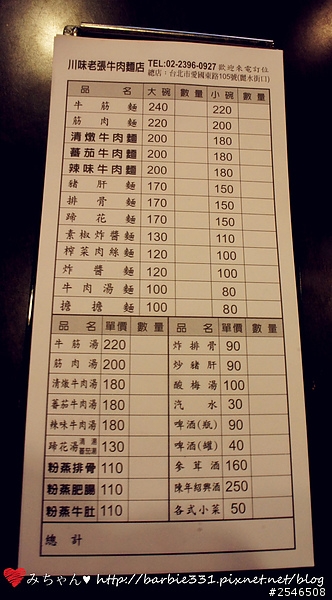 川味老張牛肉麵店 TEL:02-2396-0927 歡迎來電訂位
總店:台北市愛國東路105號(麗水街口)
品 名 大碗 數量 小碗 數量
牛筋麵 240 220
筋肉麵 220 200
清燉牛肉麵 200 180
蕃茄牛肉麵 200 180
辣味牛肉麵 200 180
豬肝麵 170 150
排骨麵 170 150
蹄花麵 170 150
素椒炸醬麵 130 110
榨菜肉絲麵 120 100
炸醬麵 120 100
牛肉湯麵 100 80
擔擔麵 100 80
品 名 單價 數量
牛筋湯 220
筋肉湯 200
清燉牛肉湯 180
蕃茄牛肉湯 180
辣味牛肉湯 180
蹄花湯 清湯 蕃茄湯 130
粉蒸排骨 110
粉蒸肥腸 110
粉蒸牛肚 110
品 名 單價 數量
炸排骨 90
炒豬肝 90
酸梅湯 100
汽水 30
啤酒(瓶) 90
啤酒(罐) 40
參茸酒 160
陳年紹興酒 250
各式小菜 50
總 計
みちゃん♥ http://barbie331.pixnet.net/blog
#2546508